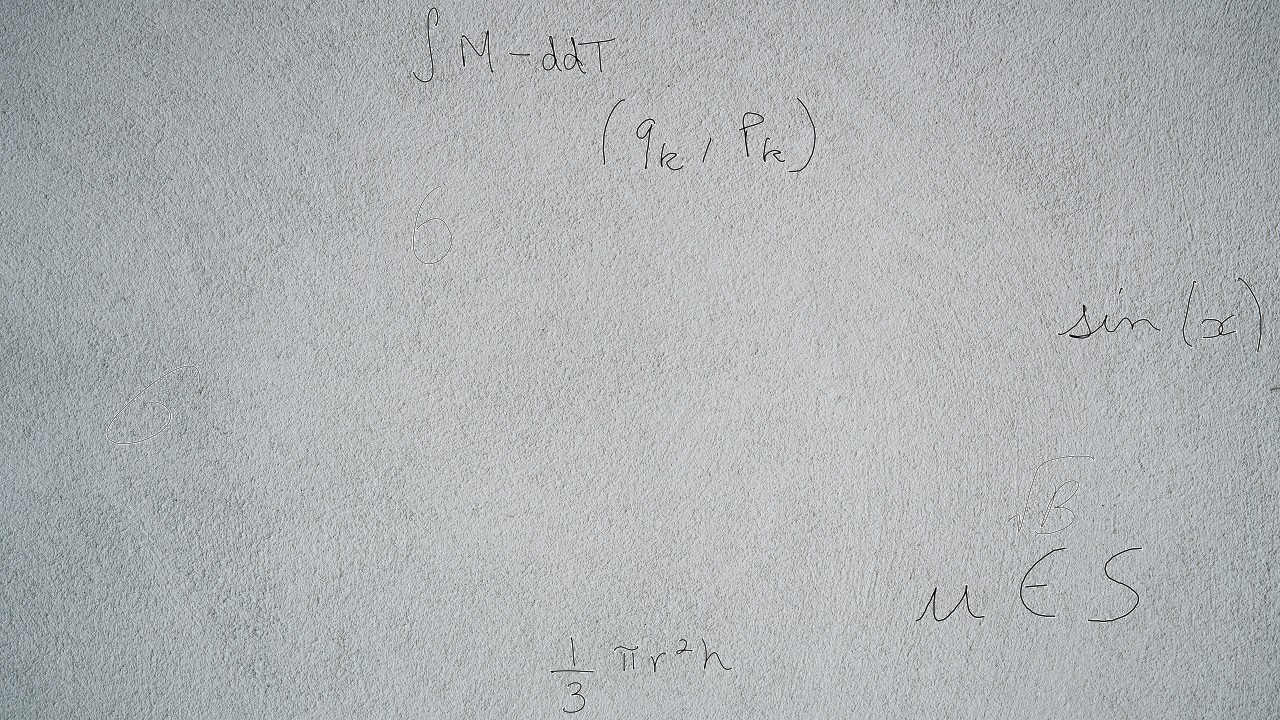 ∫ M - ddT
(q_k, p_k)
6
sin (x)
6
√B
μ ∈ S
1/3 πr²h